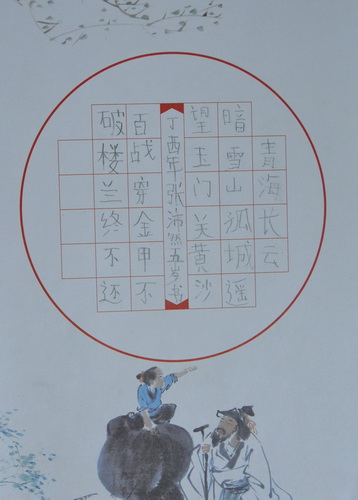 青海长云
暗雪山孤城遥
望玉门关黄沙
丁酉年张沛然五岁书
百战穿金甲不
破楼兰终不还